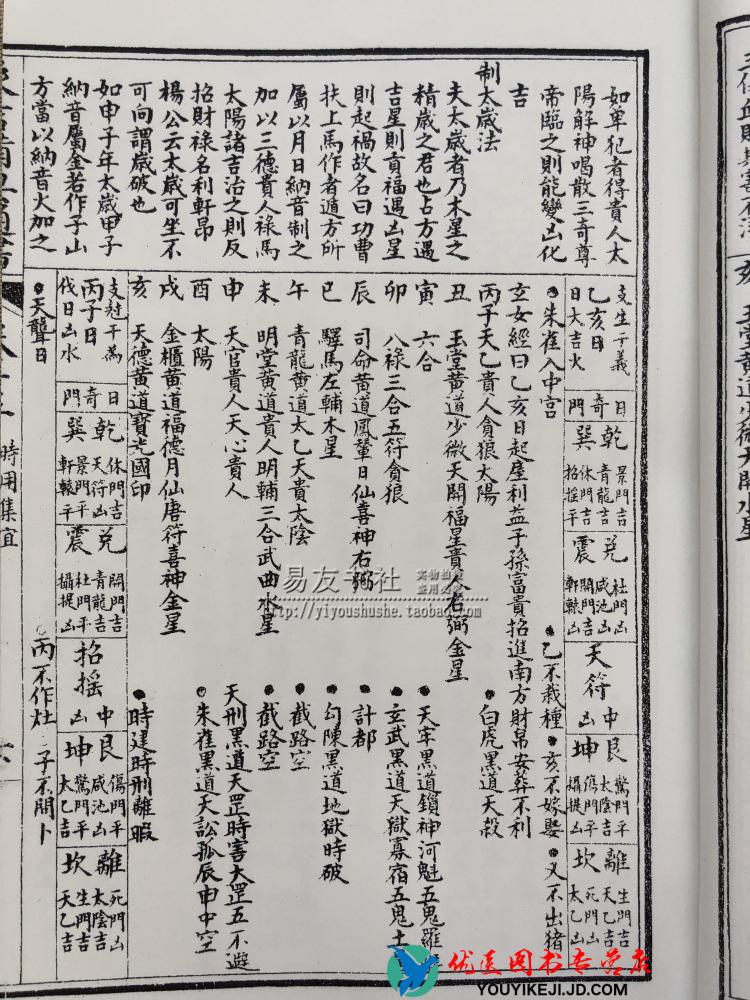 如单犯者得貴人太
陽解神喝散三奇尊
帝臨之則能變凶化
吉
制太歲法
夫太歲者乃木星之
精歲之君也占方遇
吉星則貢福遇凶星
則起禍故名曰功曹
扶上馬作者遁方所
屬以月日納音制之
加以三德貴人祿馬
太陽諸吉治之則反
招財祿名利軒昂
楊公云太歲可坐不
可向謂歲破也
如申子年太歲甲子
納音屬金若作子山
方當以納音火加之
支生干義
乙亥日
日大吉火
日奇門
乾 景門吉 青龍吉
巽 休門吉 招摇平
兌 杜門凶 咸池凶
震 開門吉 軒轅凶
天符中凶
艮 驚門平 太陰吉
坤 傷門平 攝提凶
離 生門吉 天乙吉
坎 死門凶 太乙凶
朱雀入中宮
乙不栽種
亥不嫁娶
又不出猪
玄女經曰乙亥日起屋利益子孫富貴招進南方財帛安葬不利
丙子天乙貴人貪狼太陽
白虎黑道天殺
丑 玉堂黄道少微天開福星貴人右弼金星
寅 六合
天牢黑道鎖神河魁五鬼羅
卯 八祿三合五符貪狼
玄武黑道天獄寡宿五鬼土
辰 司命黄道鳳輦日仙喜神右弼
計都
巳 驛馬左輔木星
勾陳黑道地獄時破
午 青龍黄道太乙天貴太陰
截路空
未 明堂黄道貴人明輔三合武曲水星
截路空
申 天官貴人天心貴人
天刑黑道天罡時害大罡五不遇
酉 太陽
朱雀黑道天訟孤辰申中空
戌 金櫃黄道福德月仙唐符喜神金星
亥 天德黄道寶光國印
時建時刑離暇
支尅干為
丙子日
伐日凶水
日奇門
乾 休門吉 天符凶
巽 景門吉 軒轅平
兌 開門吉 青龍吉
震 杜門平 攝提凶
招摇中凶
艮 傷門平 咸池凶
坤 驚門平 太乙吉
離 死門凶 太陰吉
坎 生門吉 天乙吉
天聾日
丙不作灶
子不問卜
時用集宜
玉堂黄道少微天開水星
易友书社
实物拍摄
盗用必究
http://yiyoushushe.taobao.com
优选图书专营店
YOUYIKEJI.JD.COM